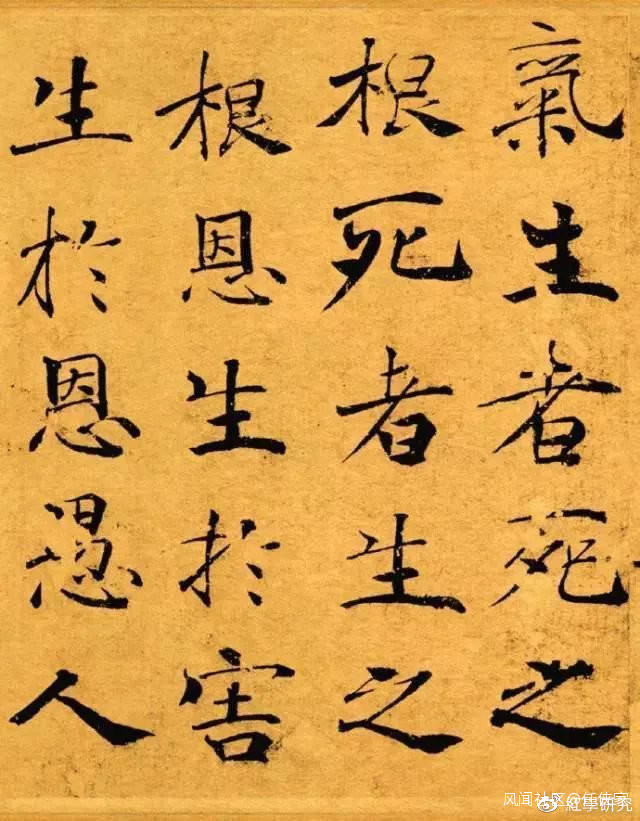 氣生者死之
根死者生之
根恩生於害
生於恩愚人
风闻社区@任
紅學研究